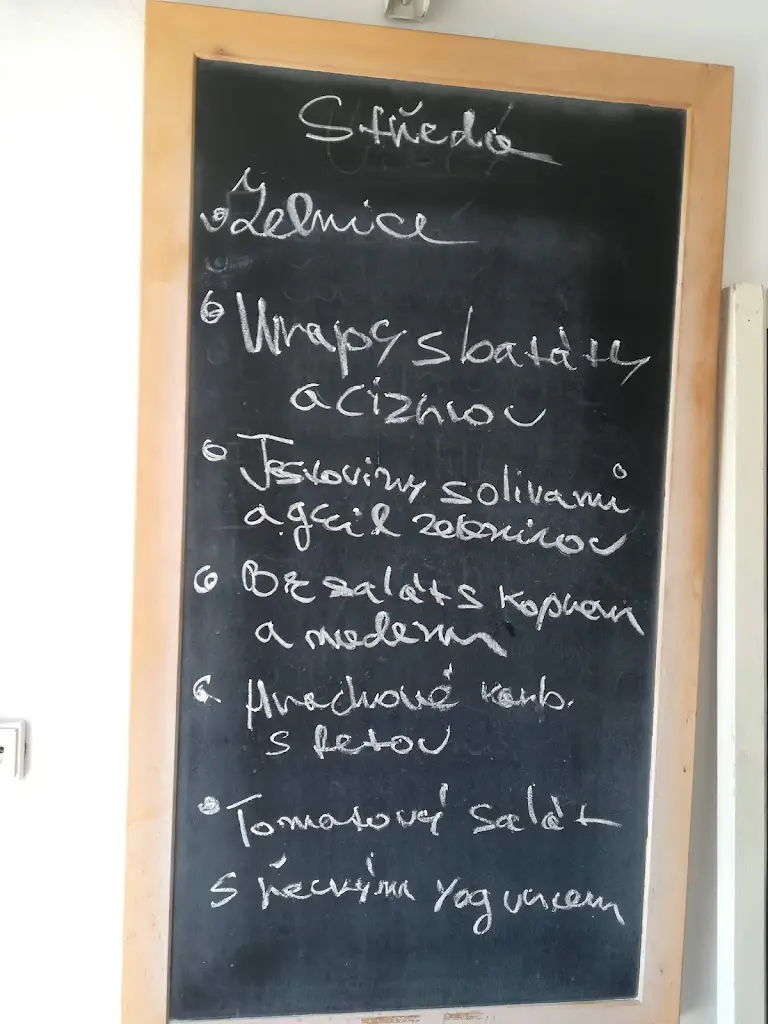 Středa
Zelnice
Wrapy s batáty
a cizrnou
Těstoviny s olivami
a gril zeleninou
BR salát s koprem
a medem
Hrachové karb.
s fetou
Tomatový salát
s řeckým yogurtem